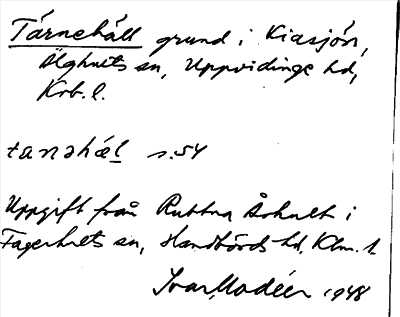 Tårnehäll grund i Kiasjön,
Älghults sn, Uppvidinge hd,
Krb. l.
tanəhäl s. 54
Uppgift från Ruttna Århult i
Fagerhults sn, Handbörds hd, Klm. l.
Ivar Modéer 1948